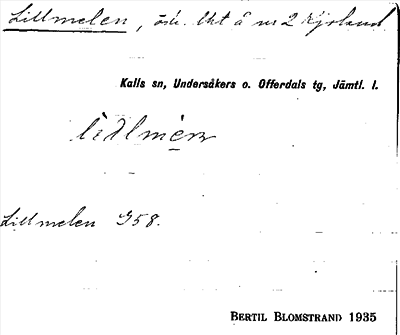 Lillmelen, öde. Uht å nr 2 Kjvsland.
Kalls sn, Undersåkers o. Offerdals tg, Jämtl. l.
Lillmelen G58.
BERTIL BLOMSTRAND 1935